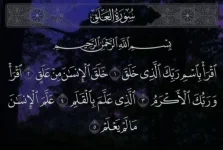 سُورَةُ العَلَقِ
بِسْمِ اللَّهِ الرَّحْمَٰنِ الرَّحِيمِ
ٱقْرَأْ بِٱسْمِ رَبِّكَ ٱلَّذِى خَلَقَ ١ خَلَقَ ٱلْإِنسَٰنَ مِنْ عَلَقٍ ٢ ٱقْرَأْ
وَرَبُّكَ ٱلْأَكْرَمُ ٣ ٱلَّذِى عَلَّمَ بِٱلْقَلَمِ ٤ عَلَّمَ ٱلْإِنسَٰنَ
مَا لَمْ يَعْلَمْ ٥